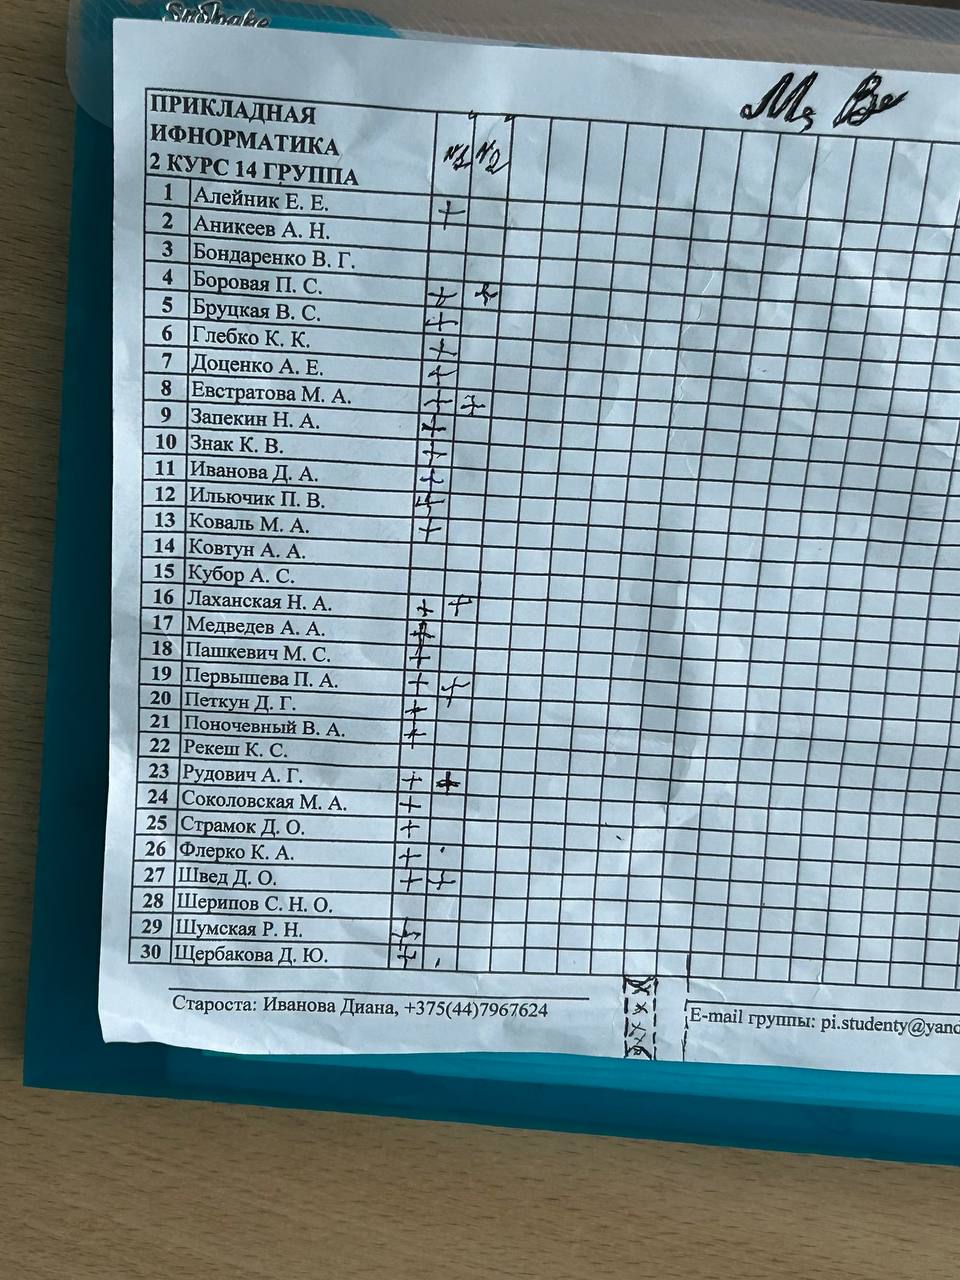 ПРИКЛАДНАЯ
ИФНОРМАТИКА
2 КУРС 14 ГРУППА
№1 №2
1 Алейник Е. Е. +
2 Аникеев А. Н.
3 Бондаренко В. Г.
4 Боровая П. С. + +
5 Бруцкая В. С. +
6 Глебко К. К. +
7 Доценко А. Е. +
8 Евстратова М. А. + +
9 Запекин Н. А. +
10 Знак К. В. +
11 Иванова Д. А. +
12 Ильючик П. В. +
13 Коваль М. А. +
14 Ковтун А. А.
15 Кубор А. С.
16 Лаханская Н. А. + +
17 Медведев А. А. +
18 Пашкевич М. С. +
19 Первышева П. А. + +
20 Петкун Д. Г. +
21 Поночевный В. А. +
22 Рекеш К. С.
23 Рудович А. Г. + +
24 Соколовская М. А. +
25 Страмок Д. О. +
26 Флерко К. А. +
27 Швед Д. О. + +
28 Шерипов С. Н. О.
29 Шумская Р. Н. +
30 Щербакова Д. Ю. +
Староста: Иванова Диана, +375(44)7967624
E-mail группы: pi.studenty@yand